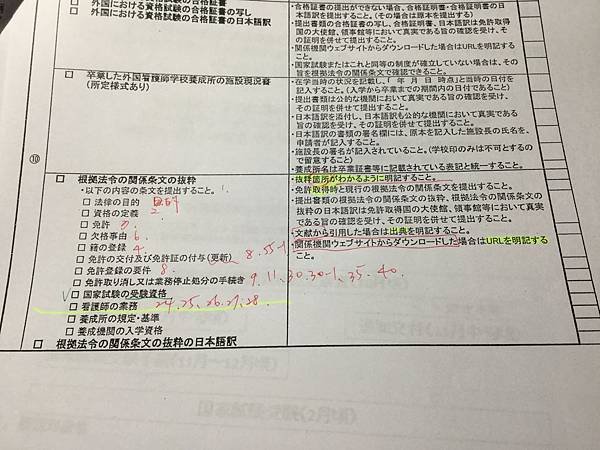 □ 外国における資格試験の合格証書の写し
□ 外国における資格試験の合格証書の日本語訳
・合格証書の提出ができない場合、合格証明書・合格証明書の日本語訳を提出すること。(その場合は原本を提出する)
・提出書類の合格証書の写し、合格証明書、日本語訳は免許取得国の大使館、領事館等において真実である旨の確認を受け、その証明を併せて提出すること。
・関係機関ウェブサイトからダウンロードした場合はURLを明記すること。
・国家試験またはこれと同等の制度が確立していない場合は、その旨を根拠法令の関係条文で確認できること。
□ 卒業した外国看護師学校養成所の施設現況書
(所定様式あり)
・在学当時の状況を記載し、「 年 月 日 時点」と当時の日付を記入すること。(入学から卒業までの期間内の日付であること)
・提出書類は公的な機関において真実である旨の確認を受け、その証明を併せて提出すること。
・日本語訳を添付し、日本語訳も公的な機関において真実である旨の確認を受け、その証明を併せて提出すること。
・日本語訳の書類の署名欄には、原本を記入した施設長の氏名を、申請者が記入すること。
・施設長の署名が記入されていること。(学校印のみは不可とするので留意すること)
・養成所名は卒業証書等に記載されている表記と統一すること。
⑩
□ 根拠法令の関係条文の抜粋
・以下の内容の条文を提出すること。 1.
□ 法律の目的
□ 資格の定義 2
□ 免許 7
□ 欠格事由 6
□ 籍の登録 4
□ 免許の交付及び免許証の付与(更新) 8.55-1
□ 免許登録の要件 8
□ 免許取り消し又は業務停止処分の手続き 9.11.30.30-1.35.40.
□ 国家試験の受験資格
□ 看護師の業務 24.25.26.27.28
□ 養成所の規定・基準
□ 養成機関の入学資格
・抜粋箇所がわかるように明記すること。
・免許取得時と現行の根拠法令の関係条文を提出すること。
・提出書類の根拠法令の関係条文の抜粋、根拠法令の関係条文の抜粋の日本語訳は免許取得国の大使館、領事館等において真実である旨の確認を受け、その証明を併せて提出すること。
・文献から引用した場合は出典を明記すること。
・関係機関ウェブサイトからダウンロードした場合はURLを明記すること。
□ 根拠法令の関係条文の抜粋の日本語訳